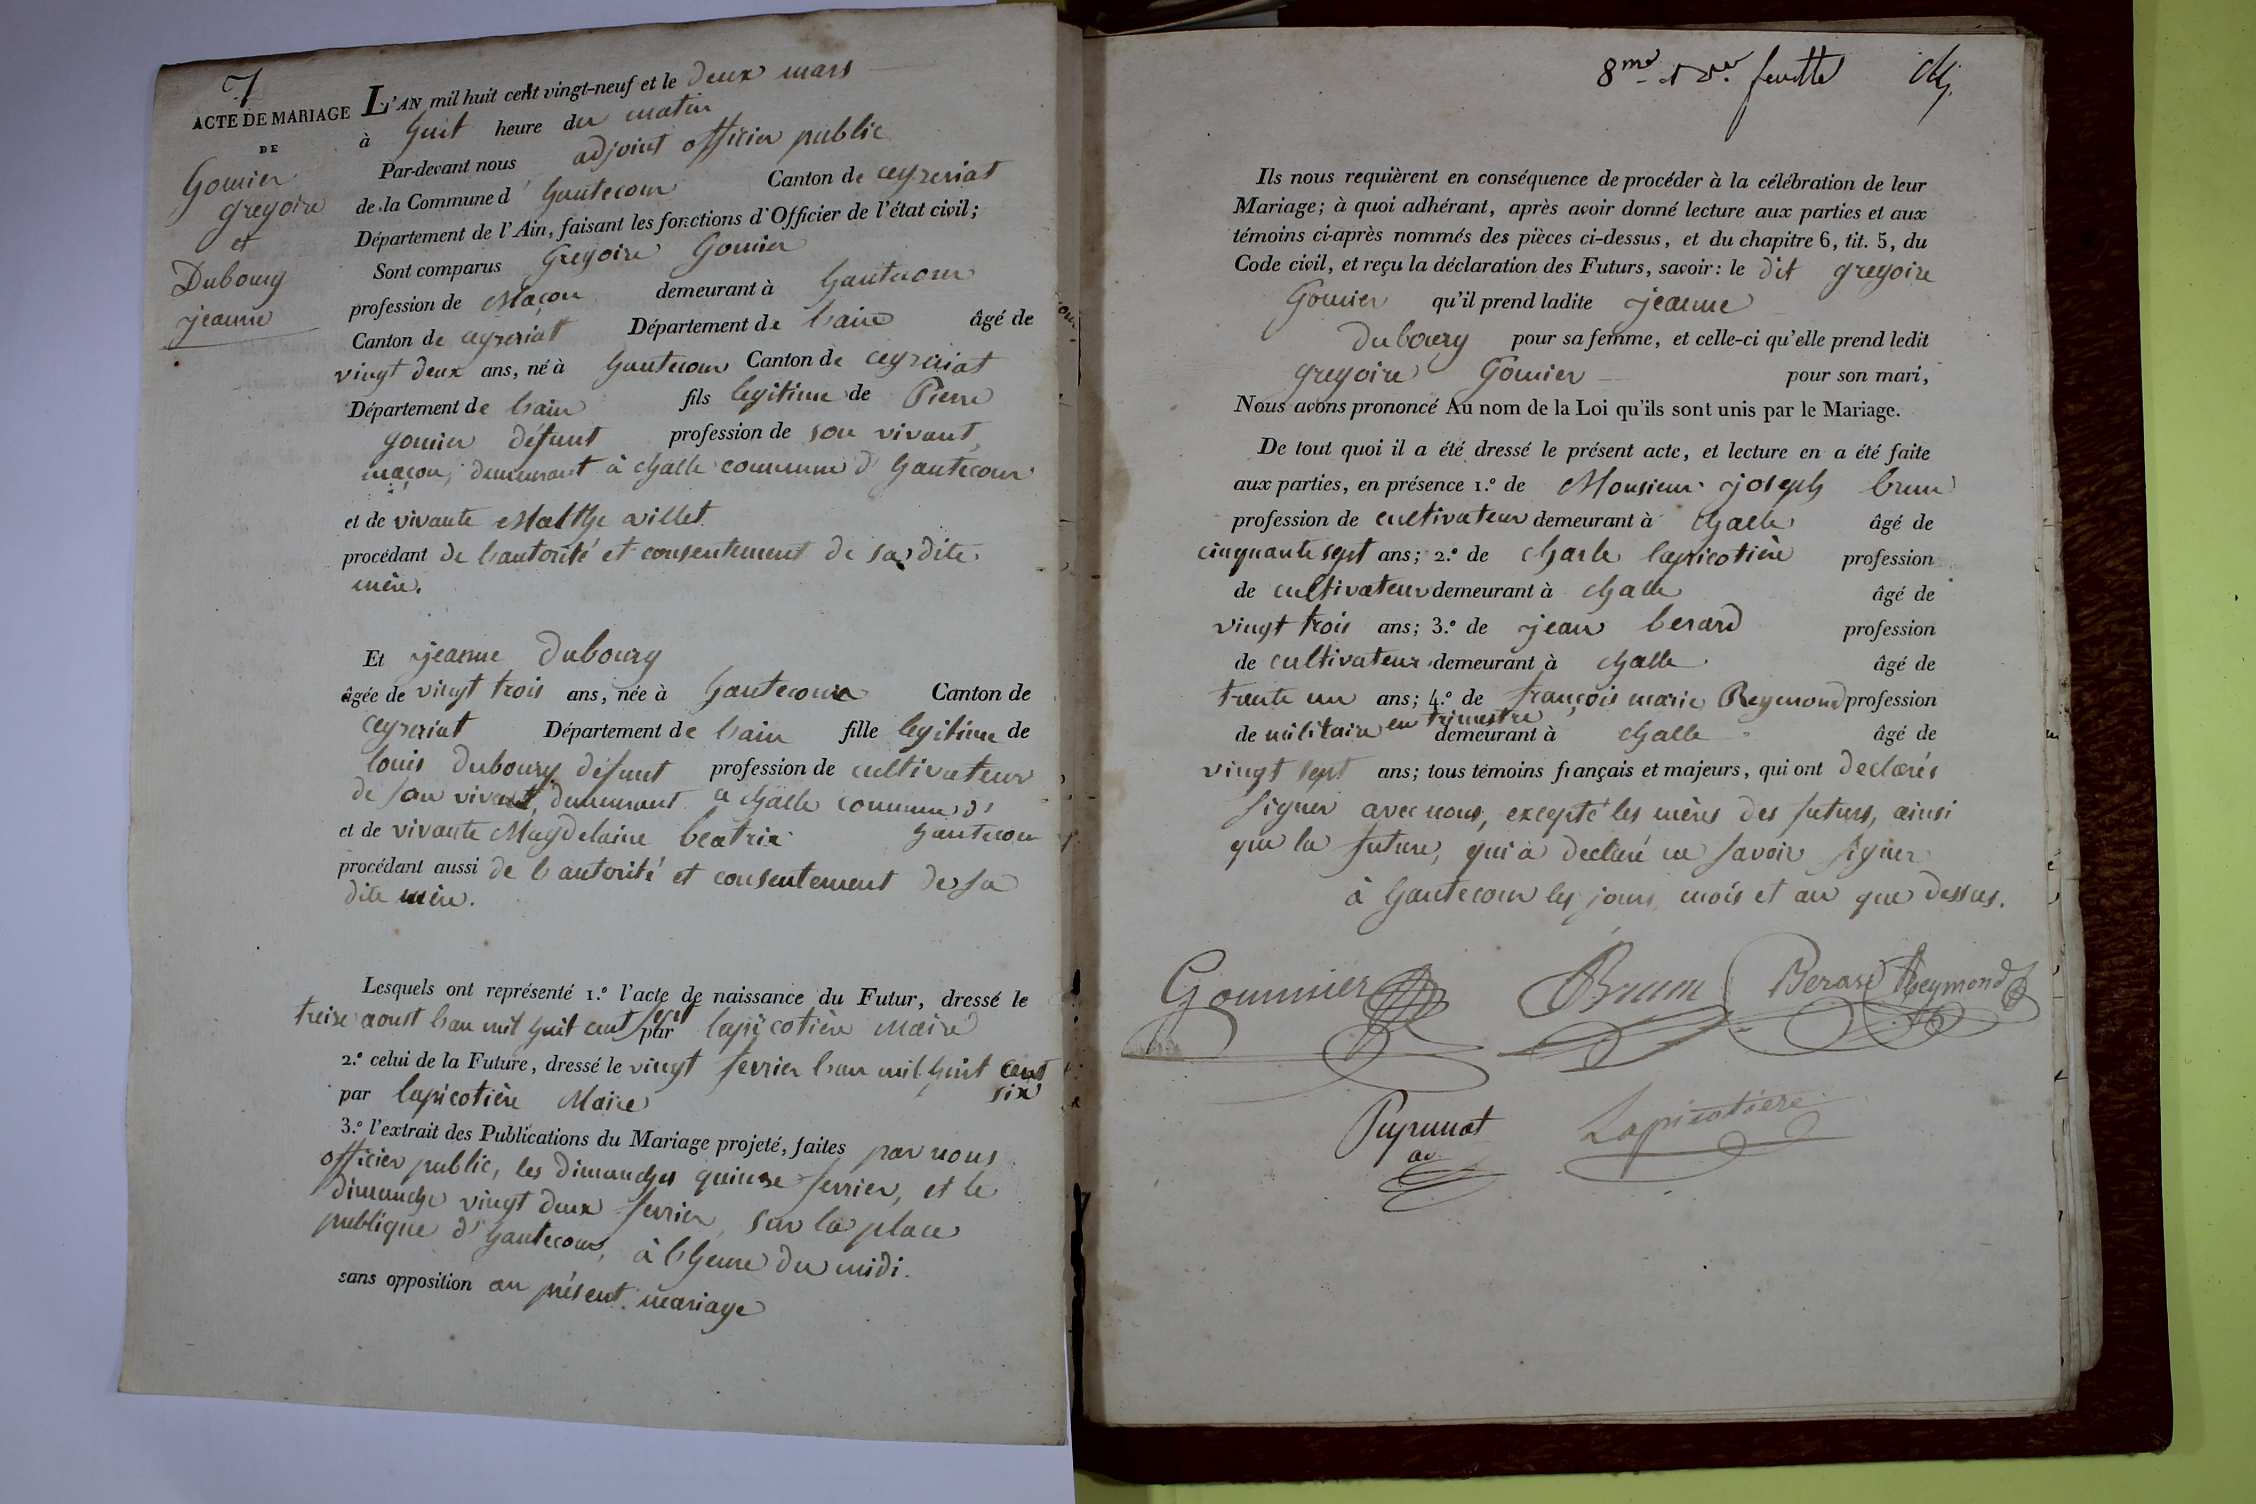 7
ACTE DE MARIAGE
DE
Gomier
gregoire
et
Dubourg
jeanne
L'AN mil huit cent vingt-neuf et le deux mars
à huit heure du matin
Par-devant nous adjoint officier public
de la Commune d' hautecour Canton de ceyzeriat
Département de l'Ain, faisant les fonctions d'Officier de l'état civil;
Sont comparus Gregoire Gomier
profession de Maçon demeurant à hautecour
Canton de ceyzeriat Département de lain âgé de
vingt deux ans, né à hautecour Canton de ceyzeriat
Département de lain fils legitime de Pierre
gomier défunt profession de son vivant
maçon, demeurant à challe commune d' hautecour
et de vivante Malthe villet
procédant de l'autorité et consentement de sa dite
mère.
Et jeanne Dubourg
âgée de vingt trois ans, née à hautecour Canton de
ceyzeriat Département de lain fille legitime de
louis dubourg défunt profession de cultivateur
de son vivant, demeurant a challe commune d'
et de vivante Magdelaine beatrix hautecour
procédant aussi de l'autorité et consentement de sa
dite mère.
Lesquels ont représenté 1.º l'acte de naissance du Futur, dressé le
treize aoust l'an mil huit cent sept par lapicotière Maire
2.º celui de la Future, dressé le vingt fevrier l'an mil huit cent
six
par lapicotière Maire
3.º l'extrait des Publications du Mariage projeté, faites par nous
officier public, les dimanches quinze fevrier, et le
dimanche vingt deux fevrier, sur la place
publique d' hautecour, à l'heure du midi.
sans opposition au présent mariage
8me et der. feuille
Ils nous requièrent en conséquence de procéder à la célébration de leur
Mariage; à quoi adhérant, après avoir donné lecture aux parties et aux
témoins ci-après nommés des pièces ci-dessus, et du chapitre 6, tit. 5, du
Code civil, et reçu la déclaration des Futurs, savoir: le dit gregoire
Gomier qu'il prend ladite jeanne
dubourg pour sa femme, et celle-ci qu'elle prend ledit
gregoire Gomier pour son mari,
Nous avons prononcé Au nom de la Loi qu'ils sont unis par le Mariage.
De tout quoi il a été dressé le présent acte, et lecture en a été faite
aux parties, en présence 1.º de Monsieur joseph brun
profession de cultivateur demeurant à challe âgé de
cinquante sept ans; 2.º de charle lapicotière profession
de cultivateur demeurant à challe âgé de
vingt trois ans; 3.º de jean berard profession
de cultivateur demeurant à challe âgé de
trente un ans; 4.º de françois marie Reymond profession
de militaire en trimestre demeurant à challe âgé de
vingt sept ans; tous témoins français et majeurs, qui ont declarés
signer avec nous, excepté les mères des futurs, ainsi
que la future, qui a declaré ne savoir signer
à hautecour les jours, mois et an que dessus.
Goumier Brun Berard Reymond
Lapicotiere